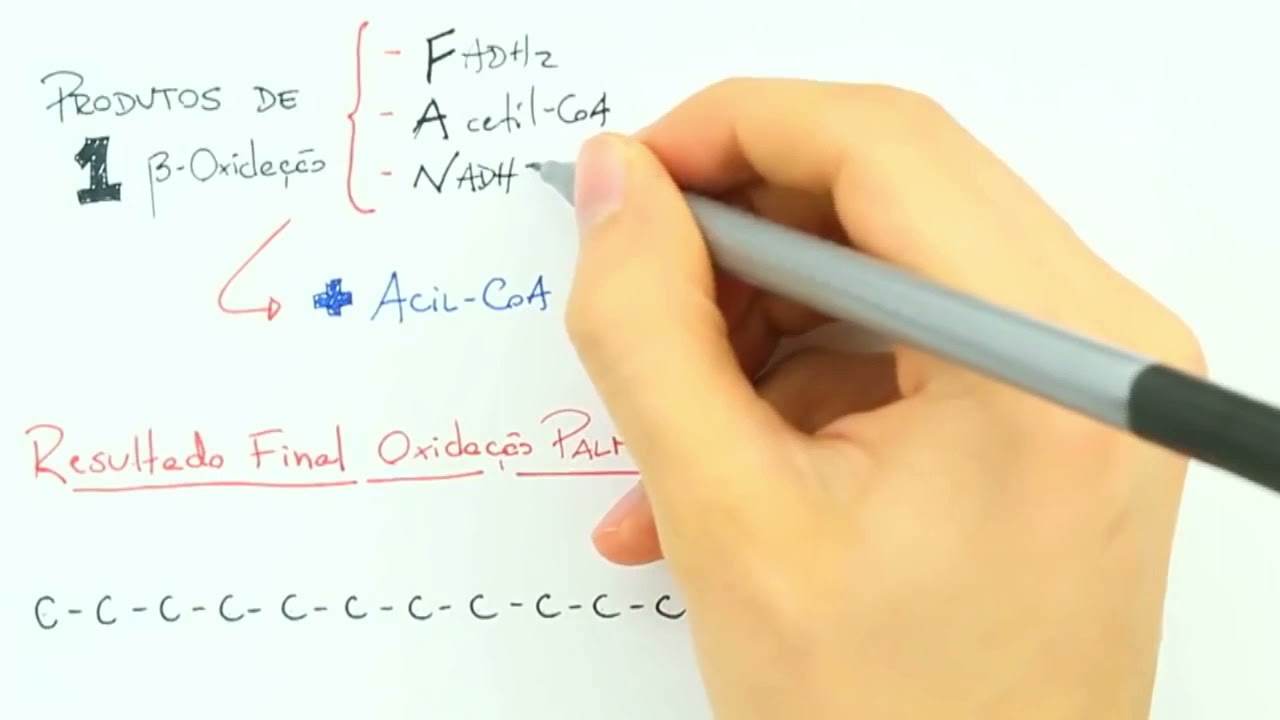 PRODUTOS DE
1 β-Oxidação
- FADH2
- Acetil-CoA
- NADH
+ Acil-CoA
Resultado Final Oxidação
C-C-C-C-C-C-C-C-C-C-C